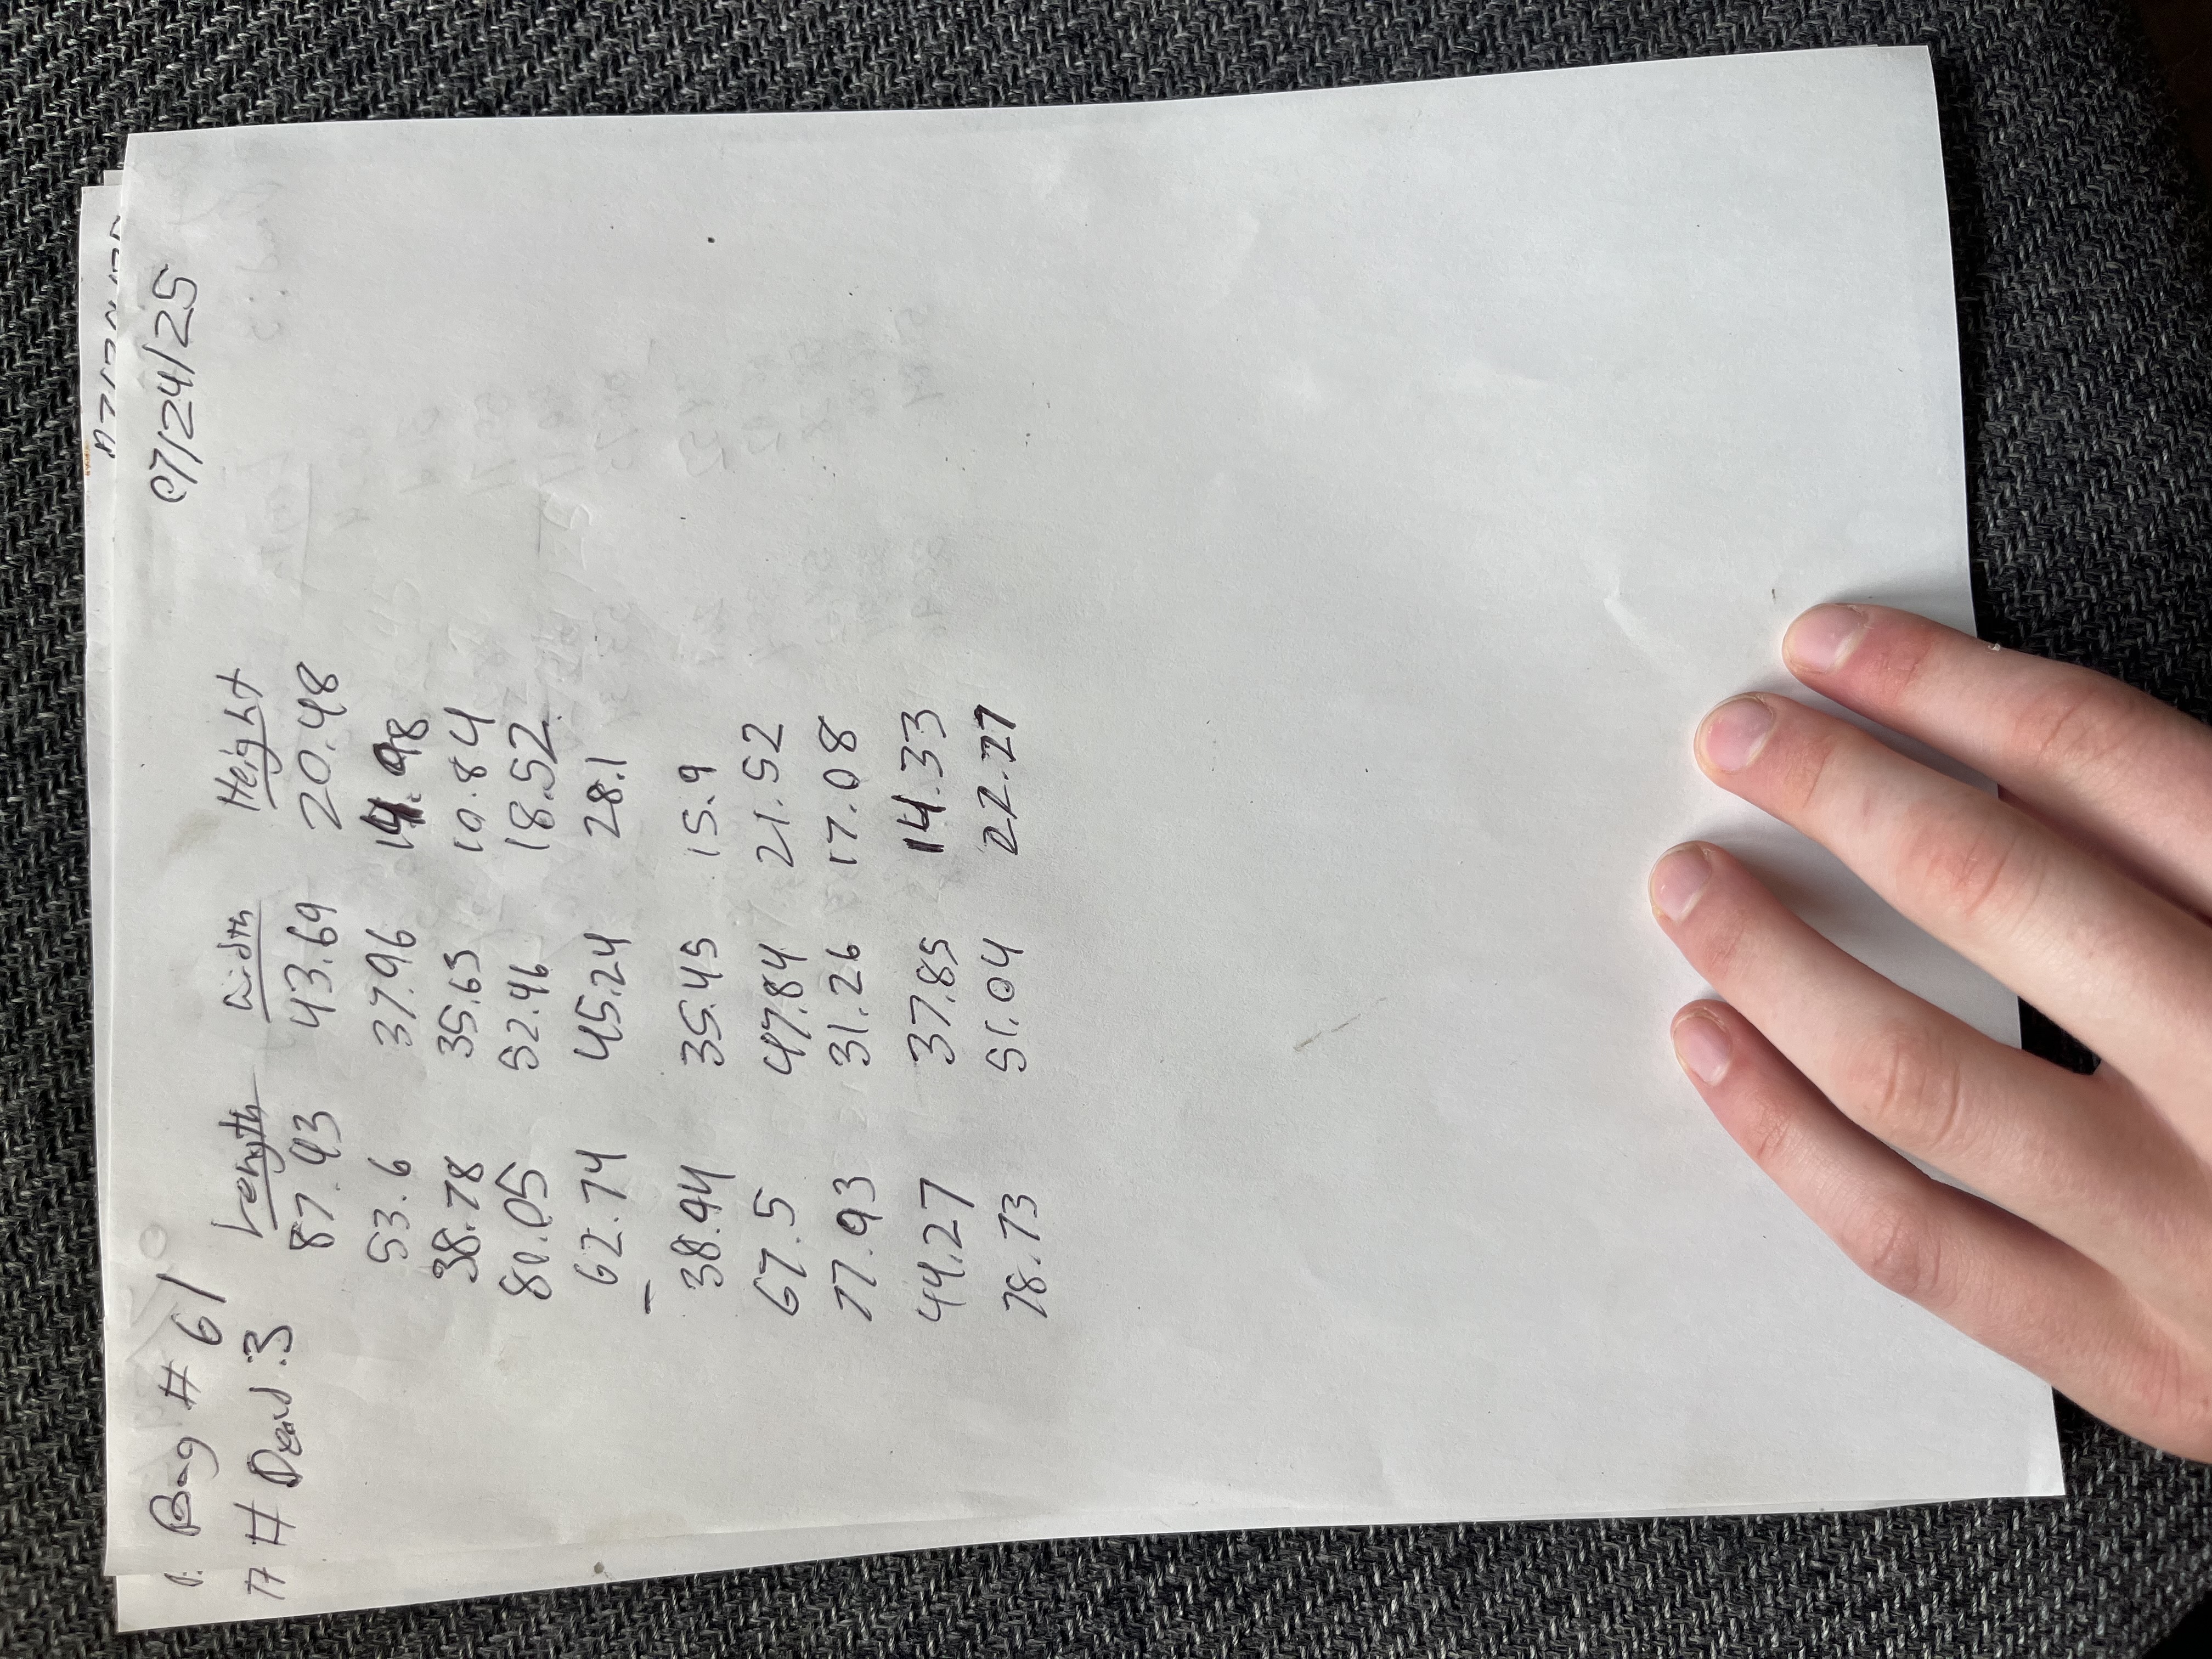 Bag # 61
07/24/25
# Dead: 3
Length Width Height
87.93 43.69 20.48
53.6 37.96 14.98
38.78 35.65 10.84
80.05 52.46 18.52
62.74 45.24 28.1
38.94 35.45 15.9
67.5 47.84 21.52
77.93 31.26 17.08
44.27 37.85 14.33
78.73 51.04 22.27